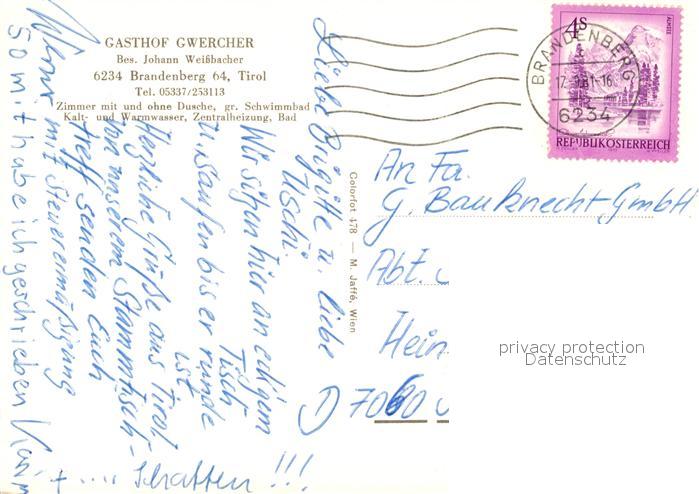 GASTHOF GWERCHER
Bes. Johann Weißbacher
6234 Brandenberg 64, Tirol
Tel. 05337/253113
Zimmer mit und ohne Dusche, gr. Schwimmbad
Kalt- und Warmwasser, Zentralheizung, Bad
Liebe Brigitte u. liebe
Uschi.
Wir sitzen hier an eckigem
Tisch
u. saufen bis er runde
ist
Herzliche Grüße aus Tirol
von unserem Stammtisch-
treff senden Euch
Werner mit Steuerermäßigung
Somit habe ich geschrieben
+ .... Schatten !!!
Colorfot 478 — M. Jaffé, Wien
4 S
ALMSEE
REPUBLIK ÖSTERREICH
BRANDENBERG
6234
An Fa.
G. Bauknecht GmbH
Abt.
Hein
D 7060
privacy protection
Datenschutz